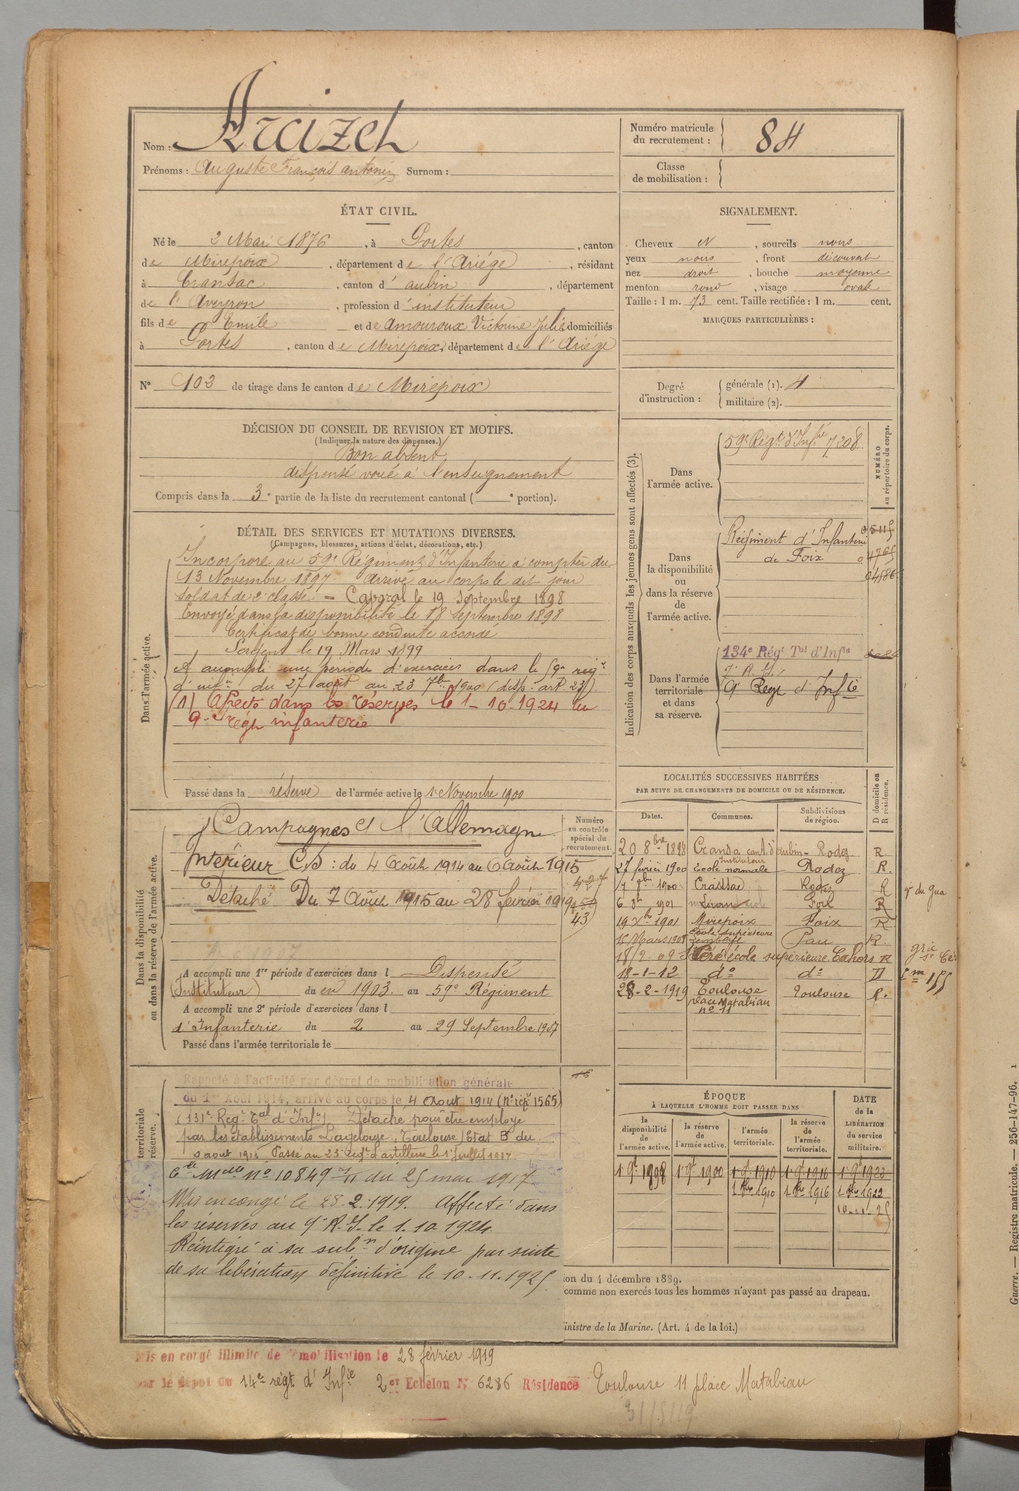 Nom : Araizet
Prénoms : Auguste François Antonin Surnom :
Numéro matricule du recrutement : 84
Classe de mobilisation :
ÉTAT CIVIL.
Né le 2 Mai 1876, à Portes, canton
de Mirepoix, département de l'Ariège, résidant
à Cransac, canton d'aubin, département
de l'Aveyron, profession d'instituteur
fils de Emile et de Amouroux Victorine Julie domiciliés
à Portes, canton de Mirepoix, département de l'Ariège
N° 103 de tirage dans le canton de Mirepoix
SIGNALEMENT.
Cheveux N, sourcils noirs
yeux noirs, front découvert
nez droit, bouche moyenne
menton rond, visage ovale
Taille : 1 m. 73 cent. Taille rectifiée : 1 m. cent.
MARQUES PARTICULIÈRES :
Degré d'instruction : générale (1). 4
militaire (2).
DÉCISION DU CONSEIL DE REVISION ET MOTIFS.
(Indiquer la nature des dispenses.)
Bon absent
dispensé voué à l'enseignement
Compris dans la 3e partie de la liste du recrutement cantonal ( e portion).
DÉTAIL DES SERVICES ET MUTATIONS DIVERSES.
(Campagnes, blessures, actions d'éclat, décorations, etc.)
Dans l'armée active.
Incorporé au 59e Régiment d'Infanterie à compter du
13 Novembre 1897 arrivé au corps le dit jour
soldat de 2e classe – Caporal le 19 Septembre 1898
Envoyé dans la disponibilité le 18 Septembre 1898
Certificat de bonne conduite accordé
Sergent le 19 Mars 1899
A accompli une période d'exercices dans le 59e régt
d'infie du 27 août au 23 7bre 1900 (disp. art 23)
(1) Affecté dans les réserves le 1-10-1924 au
9e Régt infanterie
Passé dans la réserve de l'armée active le 1 Novembre 1900
Indication des corps auxquels les jeunes gens sont affectés (3).
NUMÉRO au répertoire du corps.
Dans l'armée active.
59e Régt d'Infie 7208
Dans la disponibilité ou dans la réserve de l'armée active.
Régiment d'Infanterie
de Foix
Dans l'armée territoriale et dans sa réserve.
134e Régt Tal d'Infie
9e Régt d'Infie
LOCALITÉS SUCCESSIVES HABITÉES
PAR SUITE DE CHANGEMENTS DE DOMICILE OU DE RÉSIDENCE.
Dates. Communes. Subdivisions de région. D domicile ou R résidence.
20 8bre 1898 Cransac cant. d'aubin Rodez R
27 février 1900 Ecole normale Instituteur Rodez R.
1900 Cransac Rodez R
1901 Foix R
1901 Mirepoix Foix R
15 Mars 1909 Ecole supérieure Pau R.
école supérieure Cahors R
18-1-12 do do D
28-2-1919 Toulouse Toulouse R.
place Matabiau
no 11
Dans la disponibilité ou dans la réserve de l'armée active.
Numéro au contrôle spécial du recrutement.
Campagnes et l'Allemagne
Intérieur CS : du 4 Août 1914 au 6 Août 1915
Détaché Du 7 Août 1915 au 28 février 1919
A accompli une 1re période d'exercices dans l Dispensé
(Instituteur) du en 1903 au 59e Régiment
A accompli une 2e période d'exercices dans l
1 Infanterie du 2 au 29 Septembre 1907
Passé dans l'armée territoriale le
territoriale
réserve.
Rappelé à l'activité par décret de mobilisation générale
du 1er Août 1914, arrivé au corps le 4 Août 1914 (No répre 1565)
Régt Tal d'Infie) Détaché pour être employé
par les établissements Toulouse
août 1915 Passé au 23 Régt d'artillerie le 1er Juillet 1917
no 10849 du 25 mai 1917.
Mis en congé le 28.2.1919. Affecté dans
les réserves au 9e R.I. le 1.10.1924
Réintégré à sa subon d'origine par suite
de sa libération définitive le 10.11.1925.
ÉPOQUE
À LAQUELLE L'HOMME DOIT PASSER DANS
la disponibilité de l'armée active. la réserve de l'armée active. l'armée territoriale. la réserve de l'armée territoriale.
DATE de la LIBÉRATION du service militaire.
1 9bre 1898 1 9bre 1900 1 9bre 1910 1 9bre 1916 1 9bre 1922
1 8bre 1910 1 8bre 1916 1 8bre 1922
ion du 4 décembre 1889.
comme non exercés tous les hommes n'ayant pas passé au drapeau.
inistre de la Marine. (Art. 4 de la loi.)
Mis en congé illimité de démobilisation le 28 février 1919
par le dépôt du 14e régt d'Infie 2er Echelon N° 6286 Résidence Toulouse 11 place Matabiau
Guerre. — Registre matricule. — 256-147-96.